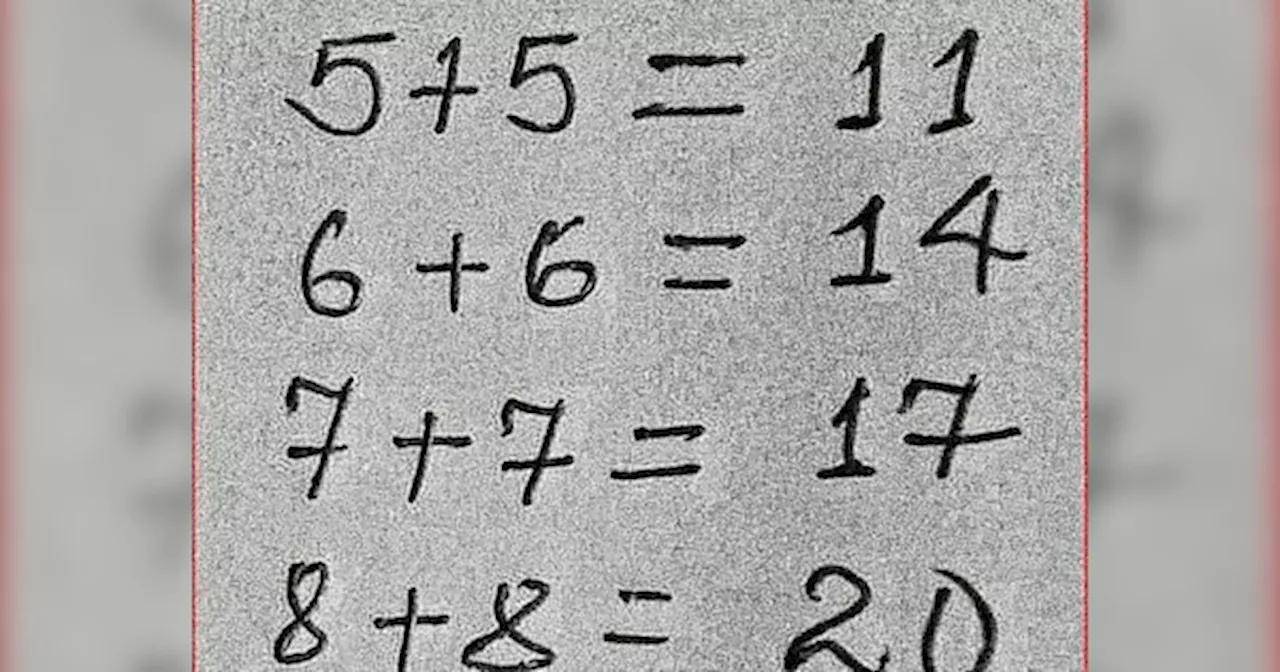 5+5 = 11
6 + 6 = 14
7 + 7 = 17
8 + 8 = 20